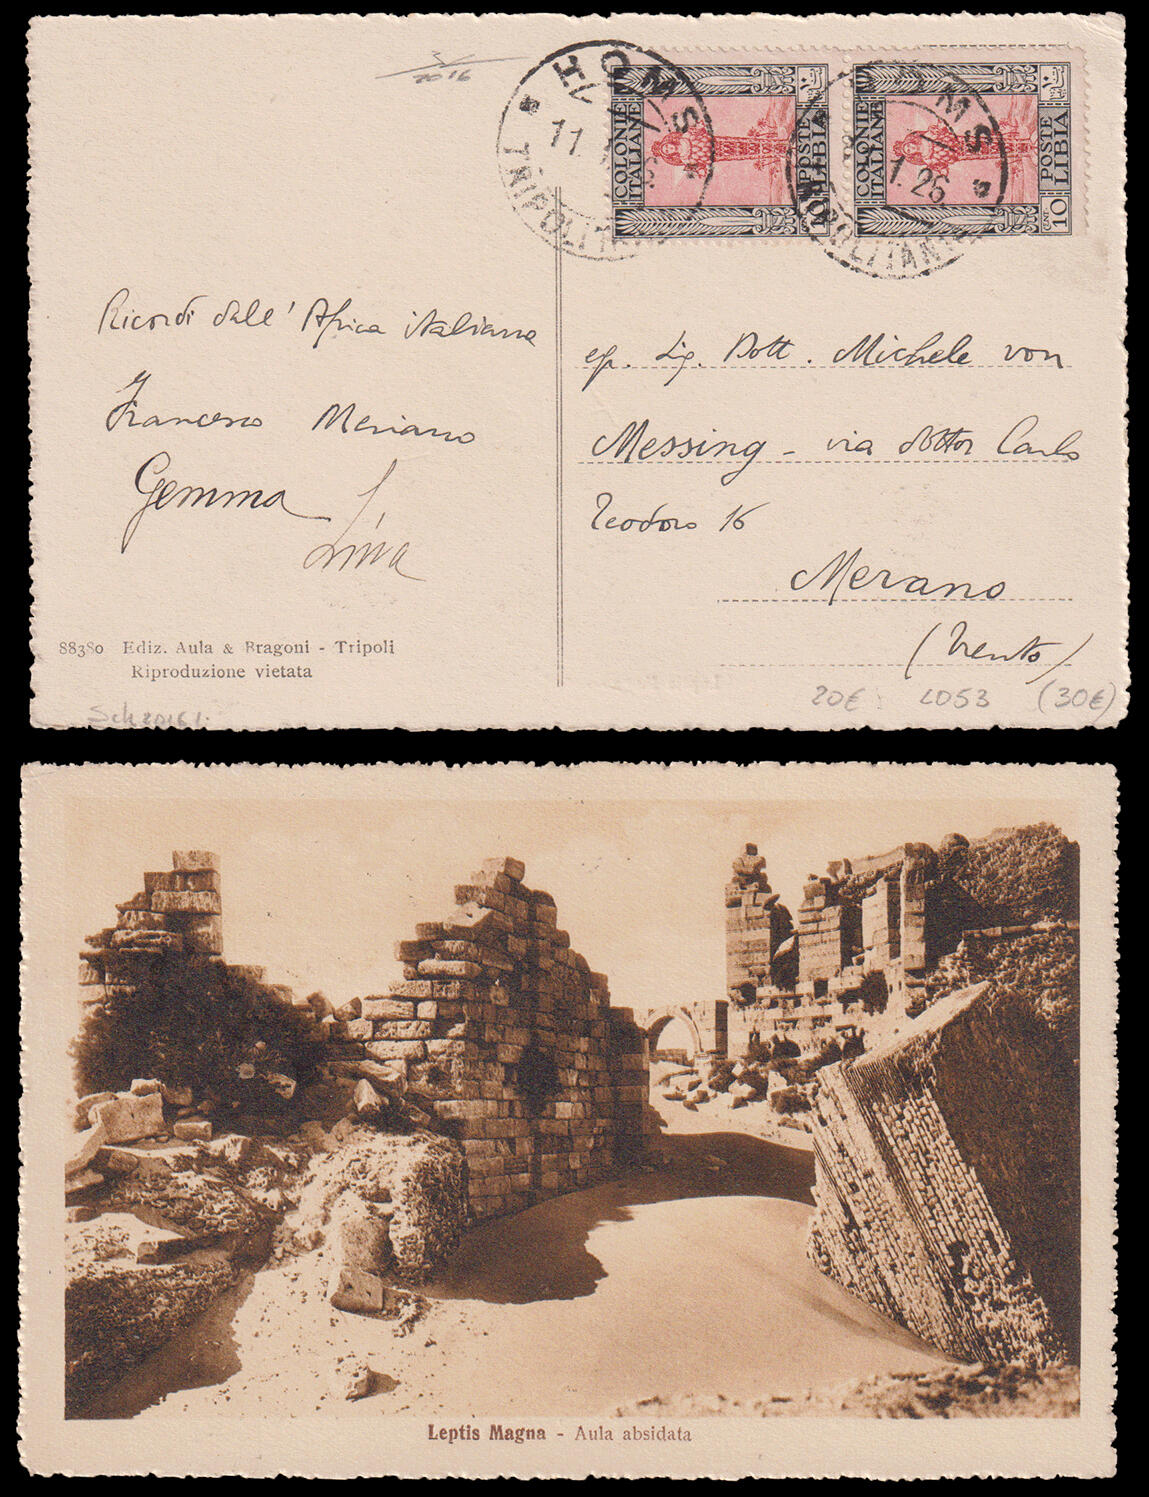 2016
HOMS
11.
TRIPOLIT
COLONIE
ITALIANE
POSTE
LIBIA
COLONIE
ITALIANE
POSTE
LIBIA
CENT. 10
OMS
1.26
POLITANIA
Ricordi dall' Africa italiana
Francesco Meriano
Gemma
Lina
eg. Sig. Dott. Michele von
Messing - via dottor Carlo
Teodoro 16
Merano
(Trento)
88380 Ediz. Aula & Bragoni - Tripoli
Riproduzione vietata
20€ LO53 (30€)
Leptis Magna - Aula absidata